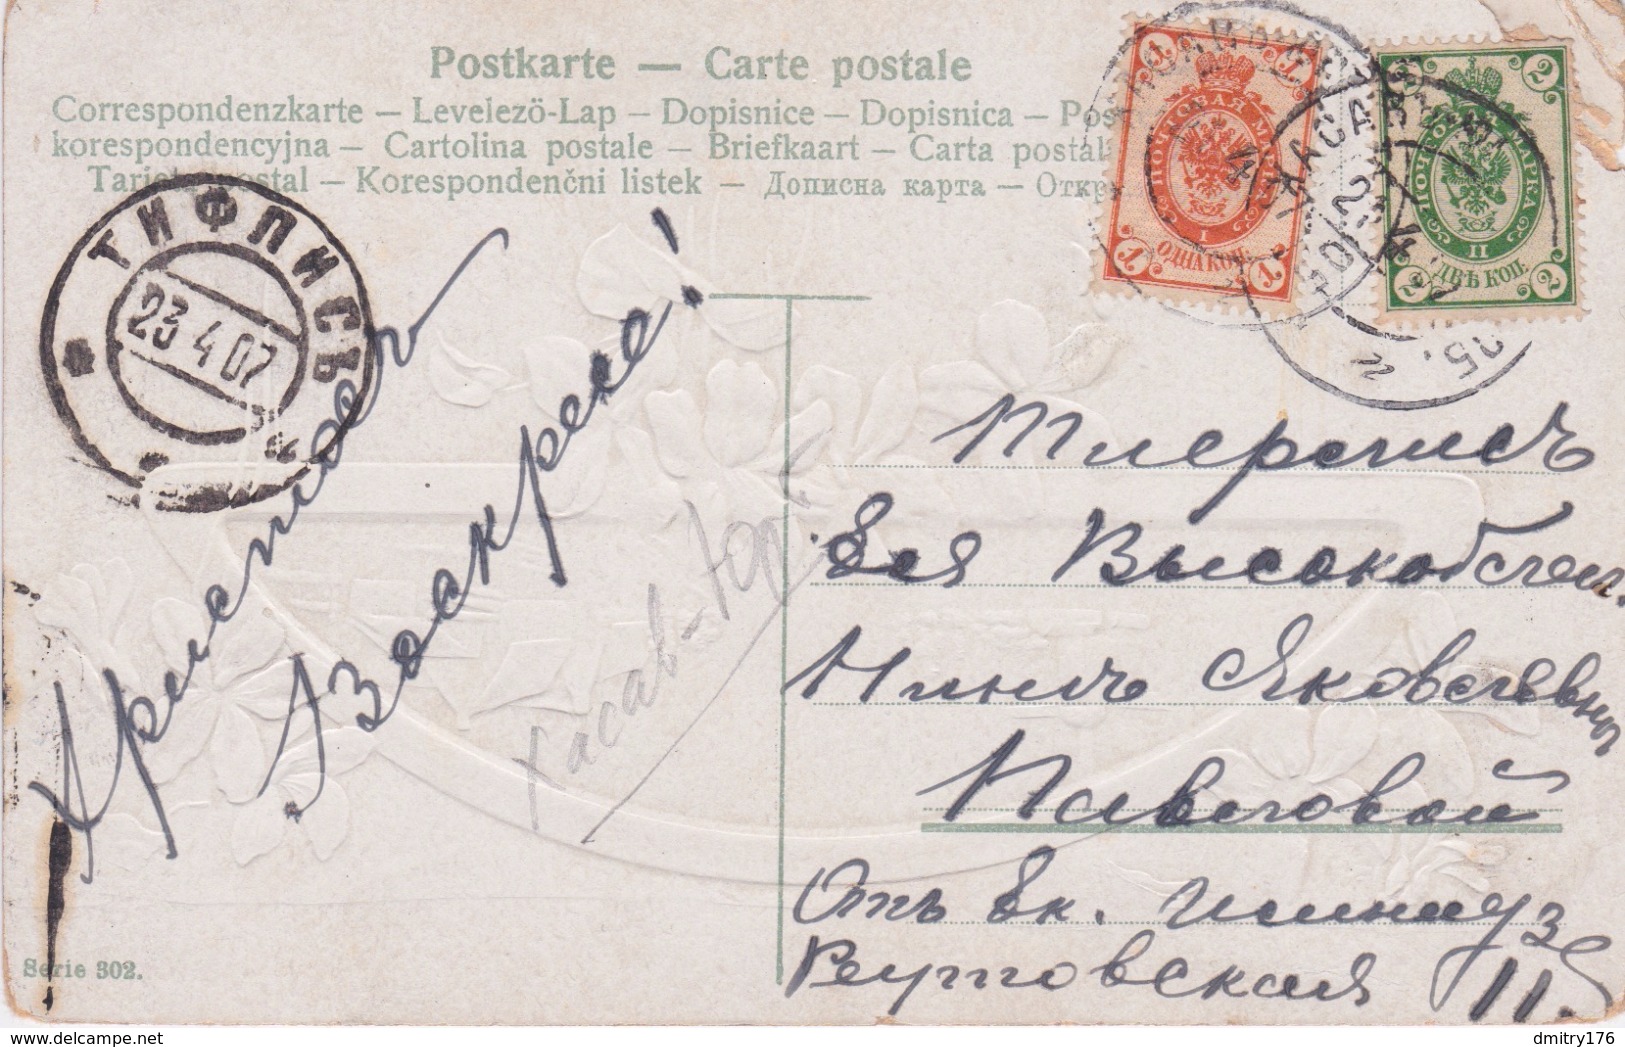 Postkarte — Carte postale
Correspondenzkarte – Levelező-Lap – Dopisnice – Dopisnica – Pos
korespondencyjna – Cartolina postale – Briefkaart – Carta postal
Tarjeta postal – Korespondenčni listek – Дописна карта – Откр
ТИФЛИСЪ
23 4 07
1 1
ПОЧТОВАЯ МАРКА
I
ОДНА КОП.
1 1
2 2
ПОЧТОВАЯ МАРКА
II
ДВѢ КОП.
2 2
ХАСАВЪ
Христосъ
Воскресе!
Хасав-Юрт
Тифлисъ
Ея Высокоблаг.
Нинѣ Яковлевнѣ
Павловой
Отъ Ек.
Реутовская 11.
Serie 302.
delcampe.net
dmitry176